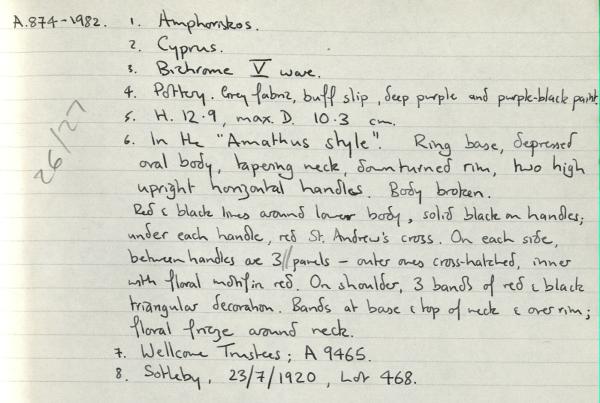 A.874-1982. 1. Amphoriskos.
2. Cyprus.
3. Bichrome V ware.
4. Pottery. Grey fabric, buff slip, deep purple and purple-black paint.
5. H. 12.9, max. D. 10.3 cm.
6. In the "Amathus style". Ring base, depressed
oval body, tapering neck, downturned rim, two high
upright horizontal handles. Body broken.
Red & black lines around lower body, solid black on handles;
under each handle, red St. Andrew's cross. On each side,
between handles are 3 panels - outer ones cross-hatched, inner
with floral motif in red. On shoulder, 3 bands of red & black
triangular decoration. Bands at base & top of neck & over rim;
floral frieze around neck.
7. Wellcome Trustees; A 9465.
8. Sotheby, 23/7/1920, Lot 468.
26/27